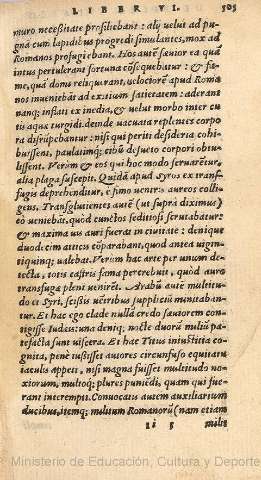 LIBER VI. 505
muro neceßitate prosiliebant: alij velut ad pu-
gna cum lapidibus progredi simulantes, mox ad
Romanos profugiebant. Hos autē sæuior ea quā
intus pertulerant fortuna cōsequebatur: & fa-
me, quā domi reliquerant, uelociorē apud Roma
nos inueniebāt ad exitium satietatem: aderant
nanq; inflati ex inedia, & velut morbo inter cu
tis aqua turgidi. deinde uacuata replentes corpo
ra disrūpebantur: nisi qui periti desideria cohi-
buissent, paulatimq; cibū desueto corpori obtu-
lissent. Verùm & eos qui hoc modo seruarētur,
alia plaga suscepit. Quidā apud Syros ex transf-
fugis deprehenditur, è fimo uentris aureos colli-
gens. Transglutientes autē (ut suprà diximus)
eò ueniebāt, quòd cunctos seditiosi scrutabātur:
& maxima uis auri fuerat in ciuitate: denique
duodecim atticis cōparabant, quod antea uigin-
tiquinq; ualebat. Verùm hac arte per unum de-
tecta, totis castris fama percrebuit, quòd auro
transfugæ pleni venirēt. Arabū autē multitu-
do et Syri, scissis uētribus supplicū minitaban-
tur. Et hac ego clade nullā credo sæuiorem con-
tigisse Iudæis: una deniq; nocte duorū milliū pa-
tefacta sunt uiscera. Et hac Titus iniustitia co-
gnita, penè iussisset autores circunfuso equitatu
iaculis appeti, nisi magna fuisset multitudo no-
xiorum, multoq; plures puniēdi, quam qui fue-
rant interempti. Conuocatis autem auxiliarium
ducibus, itemq; militum Romanorū (nam etiam
ii 5 milis
Ministerio de Educación, Cultura y Deporte